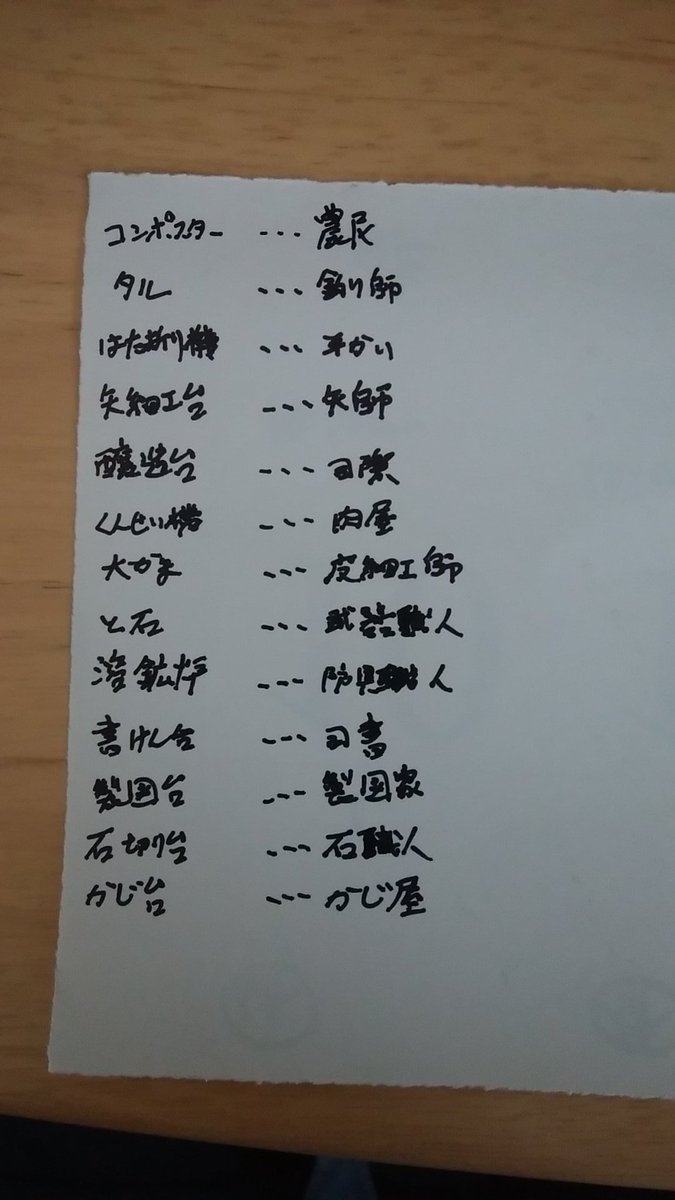 コンポスター ･･･ 農民
タル ･･･ 釣り師
はた織り機 ･･･ 羊かい
矢細工台 ･･･ 矢師
醸造台 ･･･ 司祭
くんせい機 ･･･ 肉屋
大がま ･･･ 皮細工師
と石 ･･･ 武器職人
溶鉱炉 ･･･ 防具職人
書けん台 ･･･ 司書
製図台 ･･･ 製図家
石切り台 ･･･ 石職人
かじ台 ･･･ かじ屋